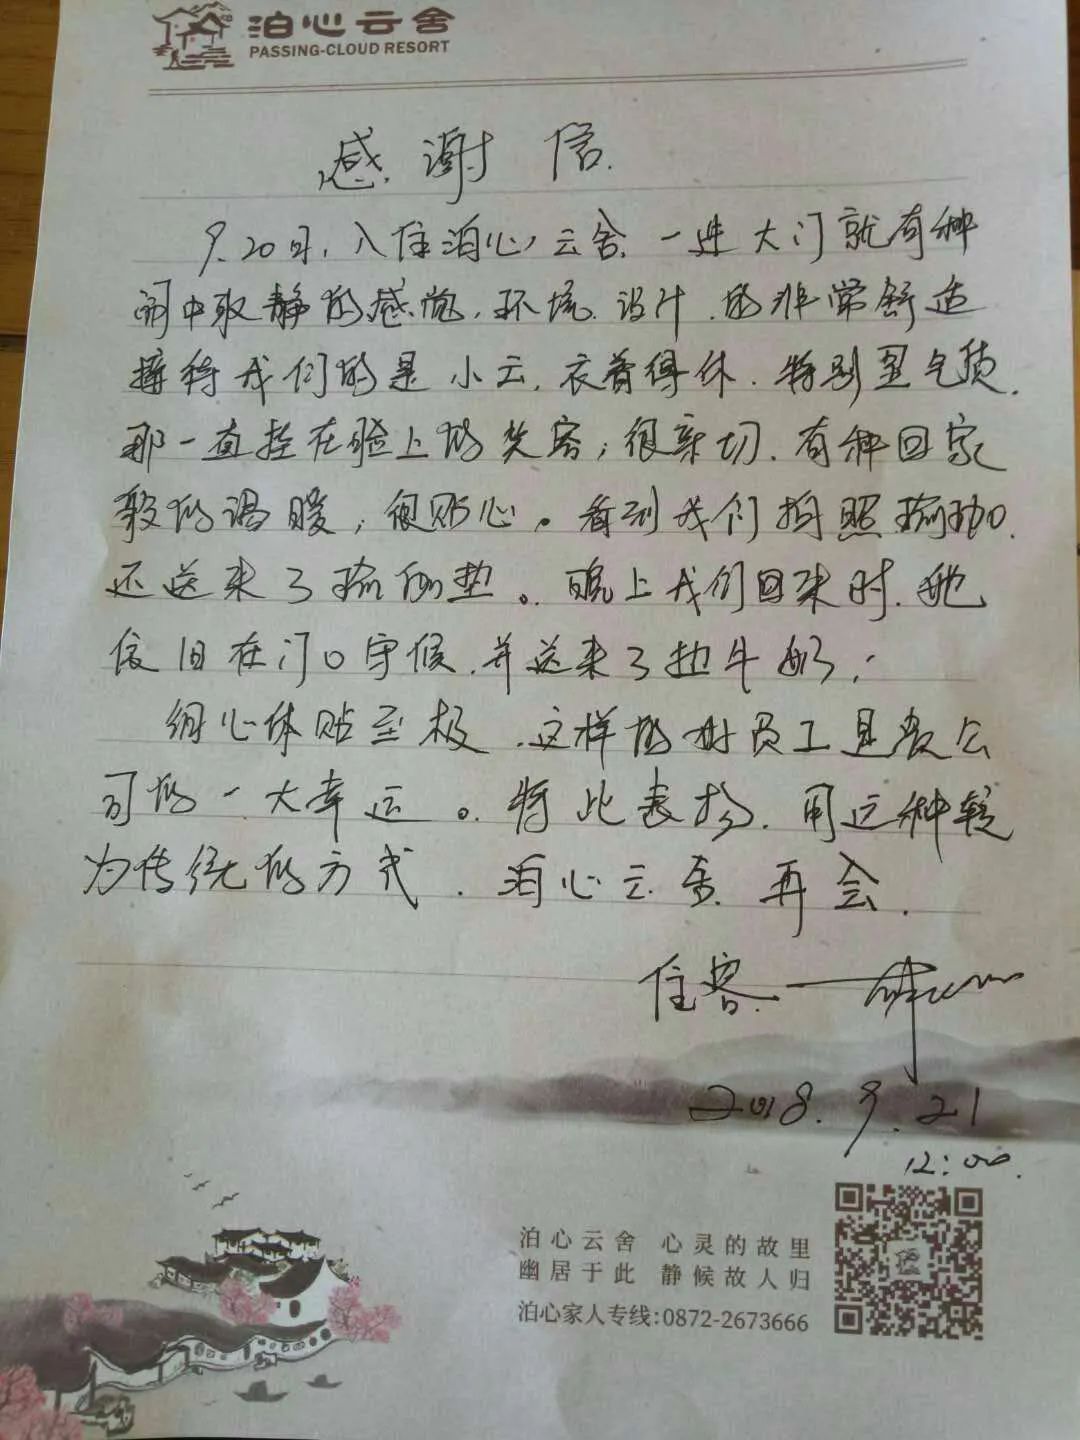 泊心云舍
PASSING-CLOUD RESORT
感谢信.
9.20日,入住泊心云舍,一进大门就有种
闹中取静的感觉,环境.设计.的非常舒适
接待我们的是小云,衣着得体.特别是气质.
那一直挂在脸上的笑容;很亲切.有种回家
般的温暖,很贴心。看到我们拍照瑜珈.
还送来了瑜伽垫。晚上我们回来时.她
依旧在门口守候,并送来了热牛奶;
细心体贴至极.这样的好员工是贵公
司的一大幸运。特此表扬.用这种较
为传统的方式.泊心云舍.再会.
住客.
2018.9.21
12:00.
泊心云舍 心灵的故里
幽居于此 静候故人归
泊心家人专线:0872-2673666